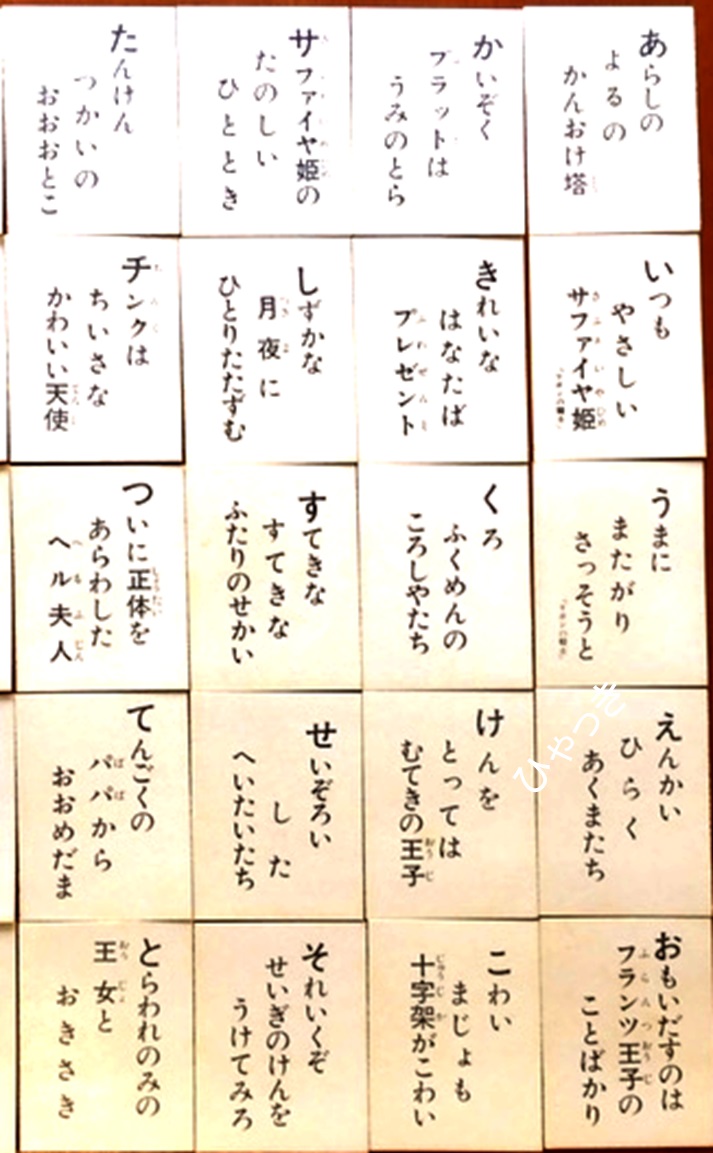 あらしの
よるの
かんおけ塔
いつも
やさしい
サファイヤ姫
うまに
またがり
さっそうと
えんかい
ひらく
あくまたち
おもいだすのは
フランツ王子の
ことばかり
かいぞく
ブラットは
うみのとら
きれいな
はなたば
プレゼント
くろ
ふくめんの
ころしやたち
けんを
とっては
むてきの王子
こわい
まじょも
十字架がこわい
サファイヤ姫の
たのしい
ひととき
しずかな
月夜に
ひとりたたずむ
すてきな
すてきな
ふたりのせかい
せいぞろい
した
へいたいたち
それいくぞ
せいぎのけんを
うけてみろ
たんけん
つかいの
おおおとこ
チンクは
ちいさな
かわいい天使
ついに正体を
あらわした
ヘル夫人
てんごくの
パパから
おおめだま
とらわれのみの
王女と
おきさき
ひゃっき